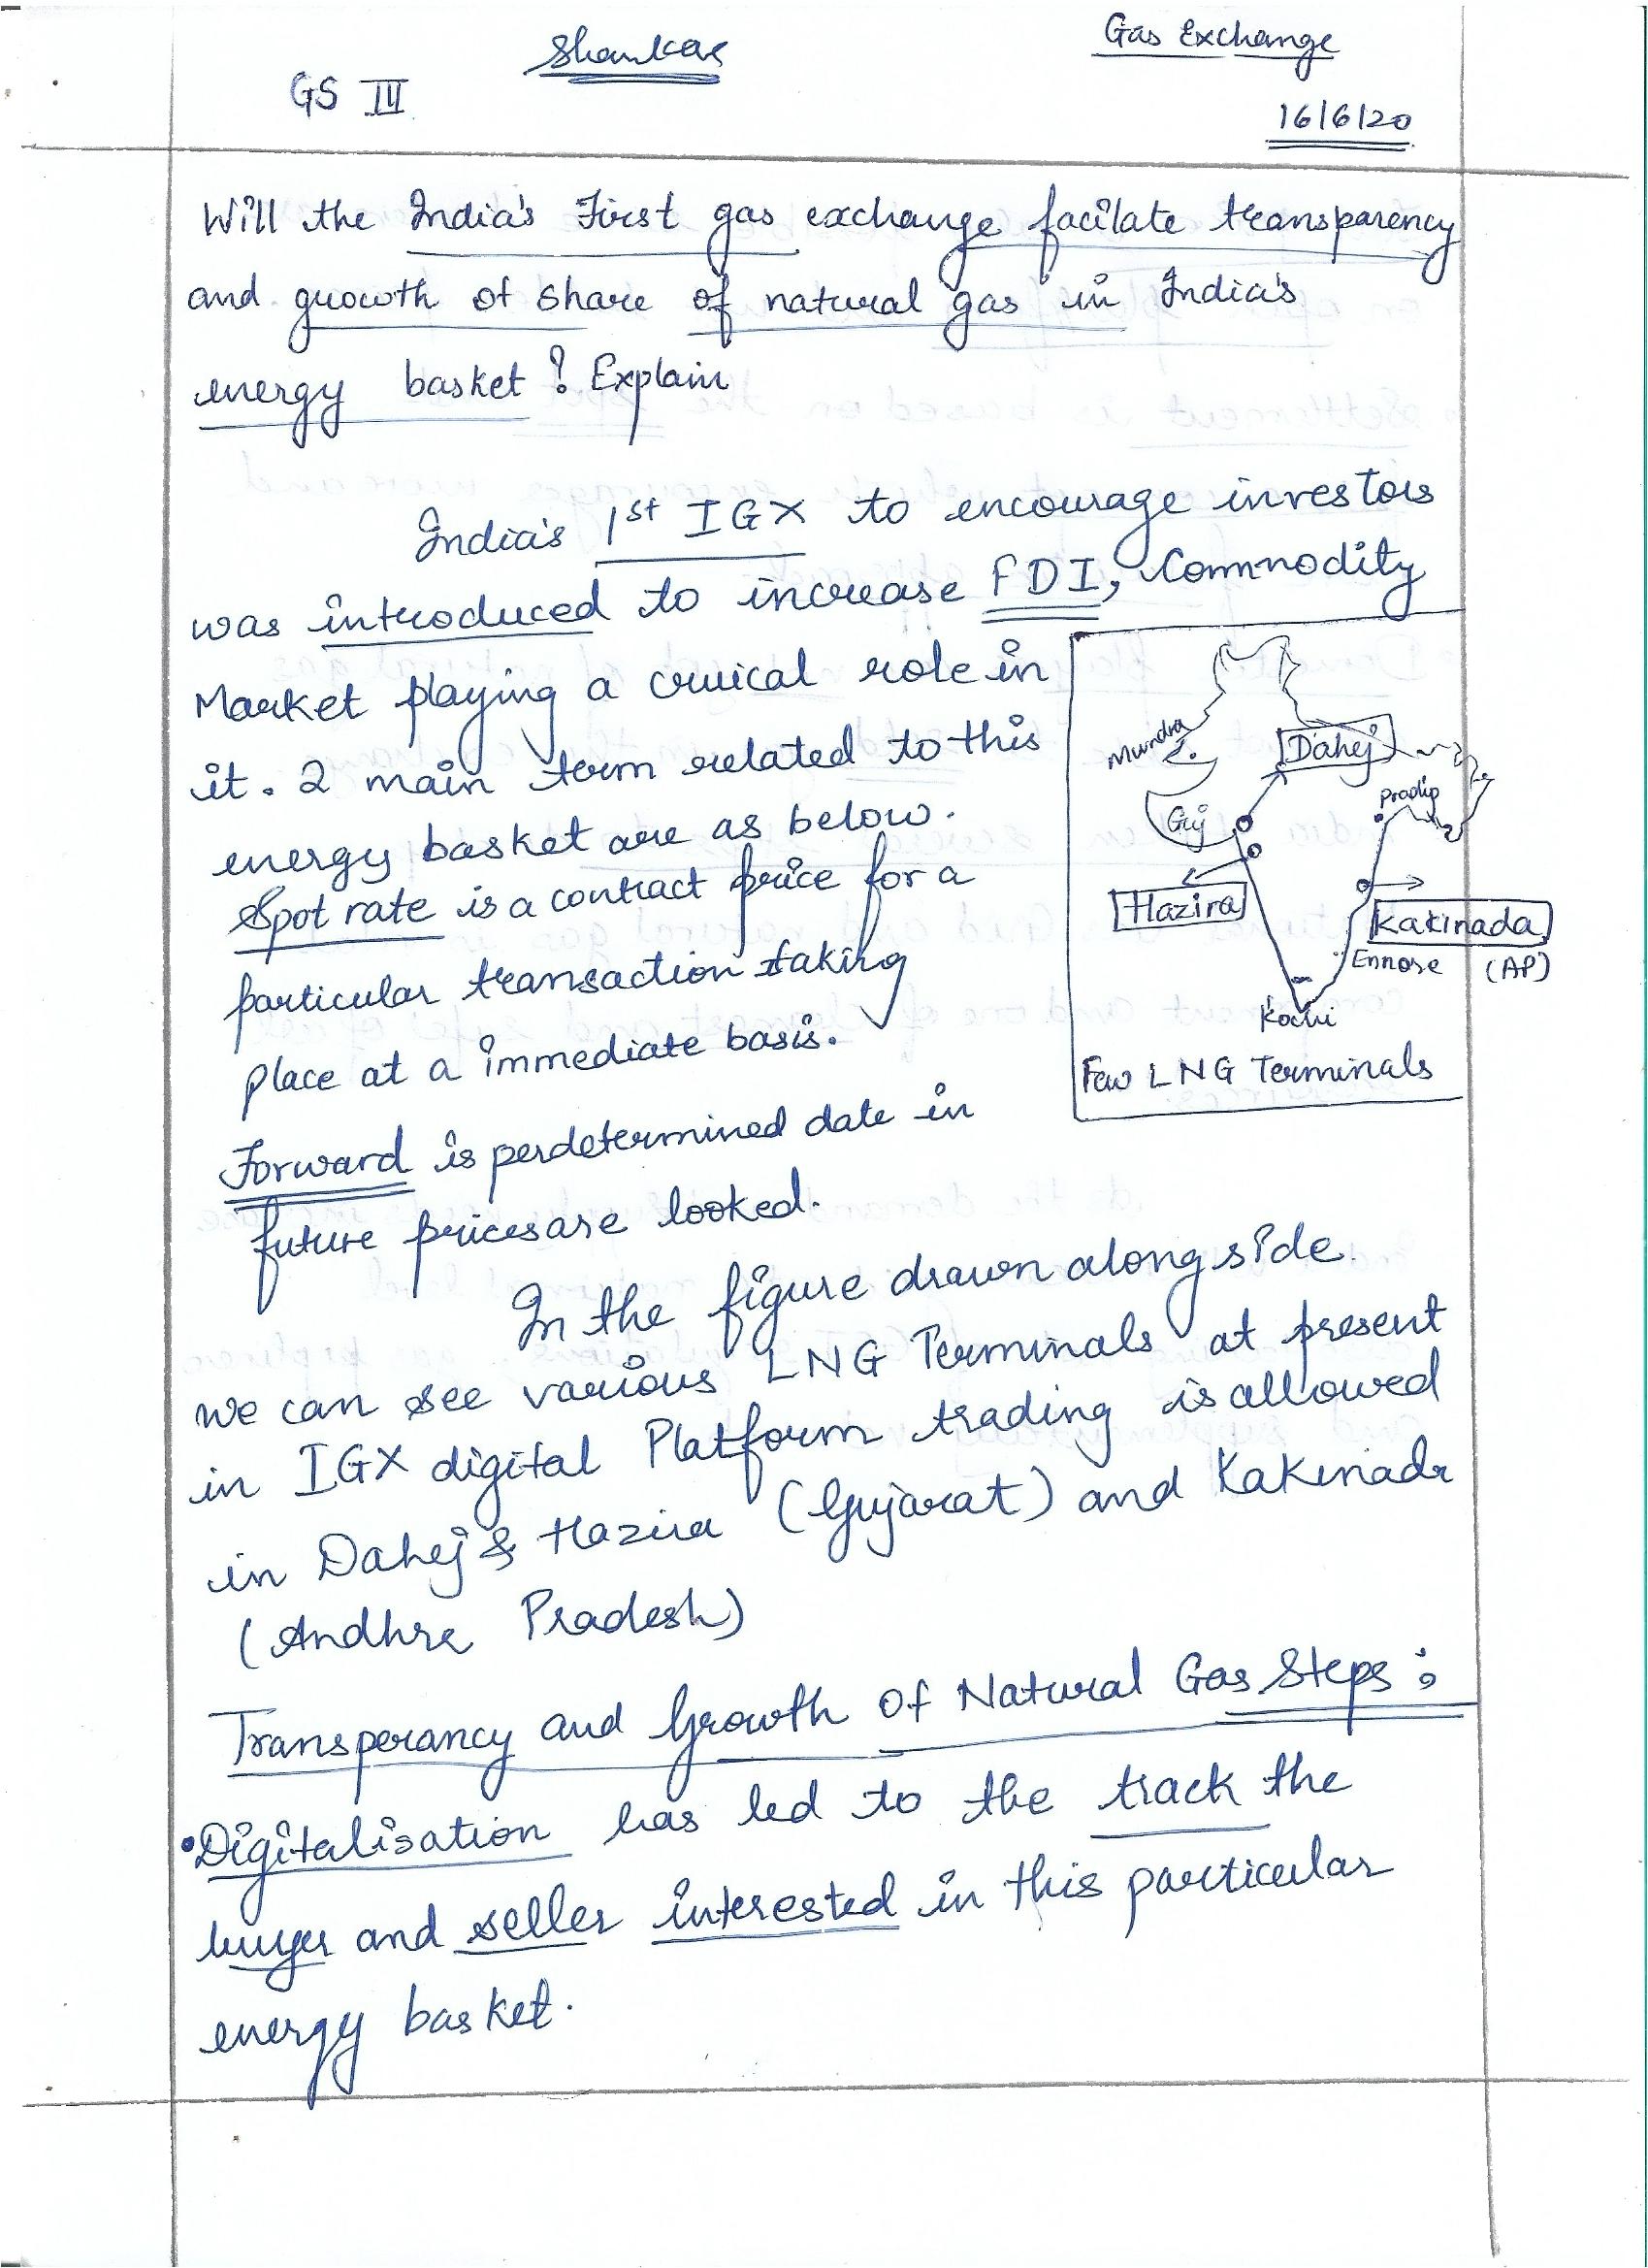 Shankar
Gas Exchange
GS III
16/6/20
Will the India's First gas exchange facilate transparency
and growth of share of natural gas in India's
energy basket? Explain
India's 1st IGX to encourage investors
was introduced to increase FDI, Commodity
Market playing a cruical role in
it. 2 main term related to this
energy basket are as below.
Spot rate is a contract price for a
particular transaction taking
place at a immediate basis.
Forward is perdetermined date in
future prices are looked.
Mundra
Dahej
Pradip
Guj
Hazira
Kakinada
Ennore (AP)
Kochi
Few LNG Terminals
In the figure drawn along side.
we can see various LNG Terminals at present
in IGX digital Platform trading is allowed
in Dahej & Hazira (Gujarat) and Kakinada
(Andhra Pradesh)
Transperancy and Growth of Natural Gas Steps:
•Digitalisation has led to the track the
buyer and seller interested in this particular
energy basket.